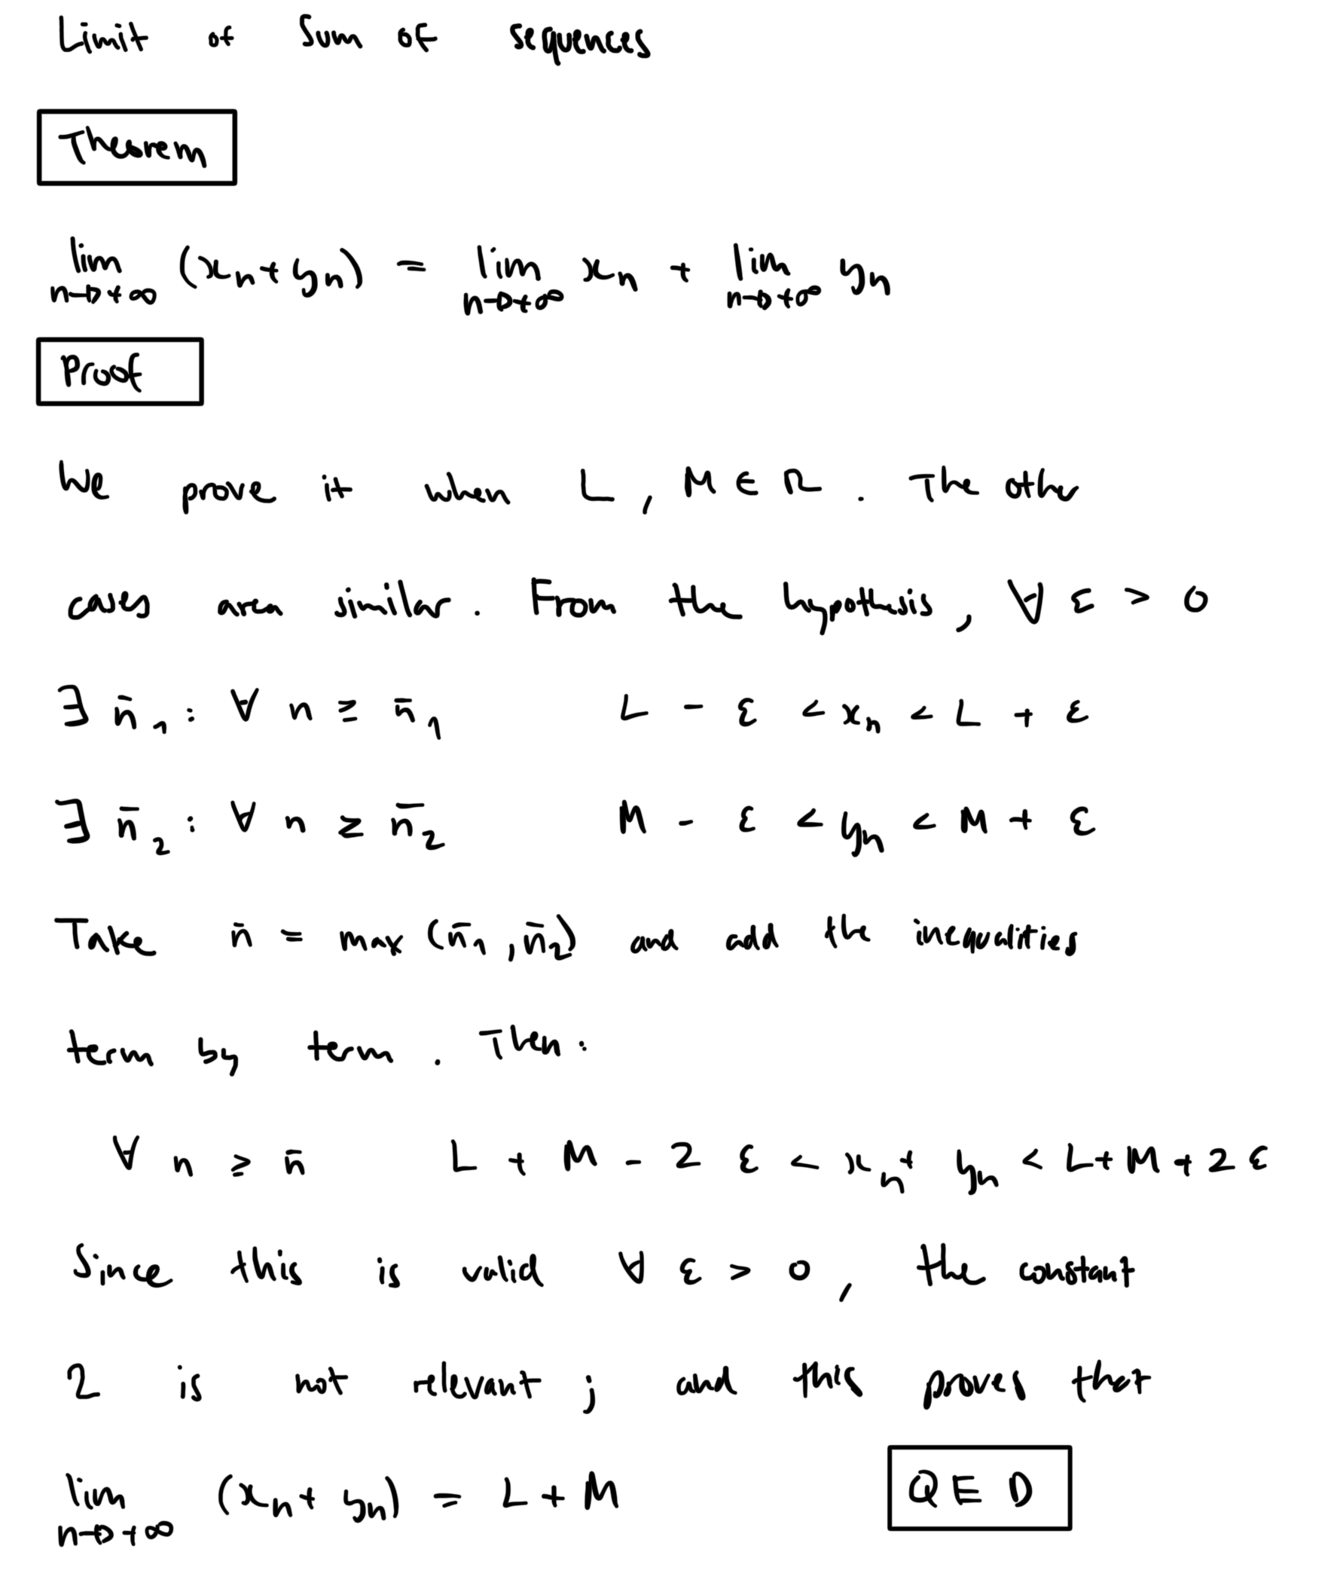 Limit of Sum of sequences
Theorem
lim n→+∞ (xn + yn) = lim n→+∞ xn + lim n→+∞ yn
Proof
We prove it when L, M ∈ R. The other
cases area similar. From the hypothesis, ∀ ε > 0
∃ n̄1 : ∀ n ≥ n̄1 L - ε < xn < L + ε
∃ n̄2 : ∀ n ≥ n̄2 M - ε < yn < M + ε
Take n̄ = max (n̄1, n̄2) and add the inequalities
term by term. Then:
∀ n ≥ n̄ L + M - 2 ε < xn + yn < L + M + 2 ε
Since this is valid ∀ ε > 0, the constant
2 is not relevant ; and this proves that
lim n→+∞ (xn + yn) = L + M QED